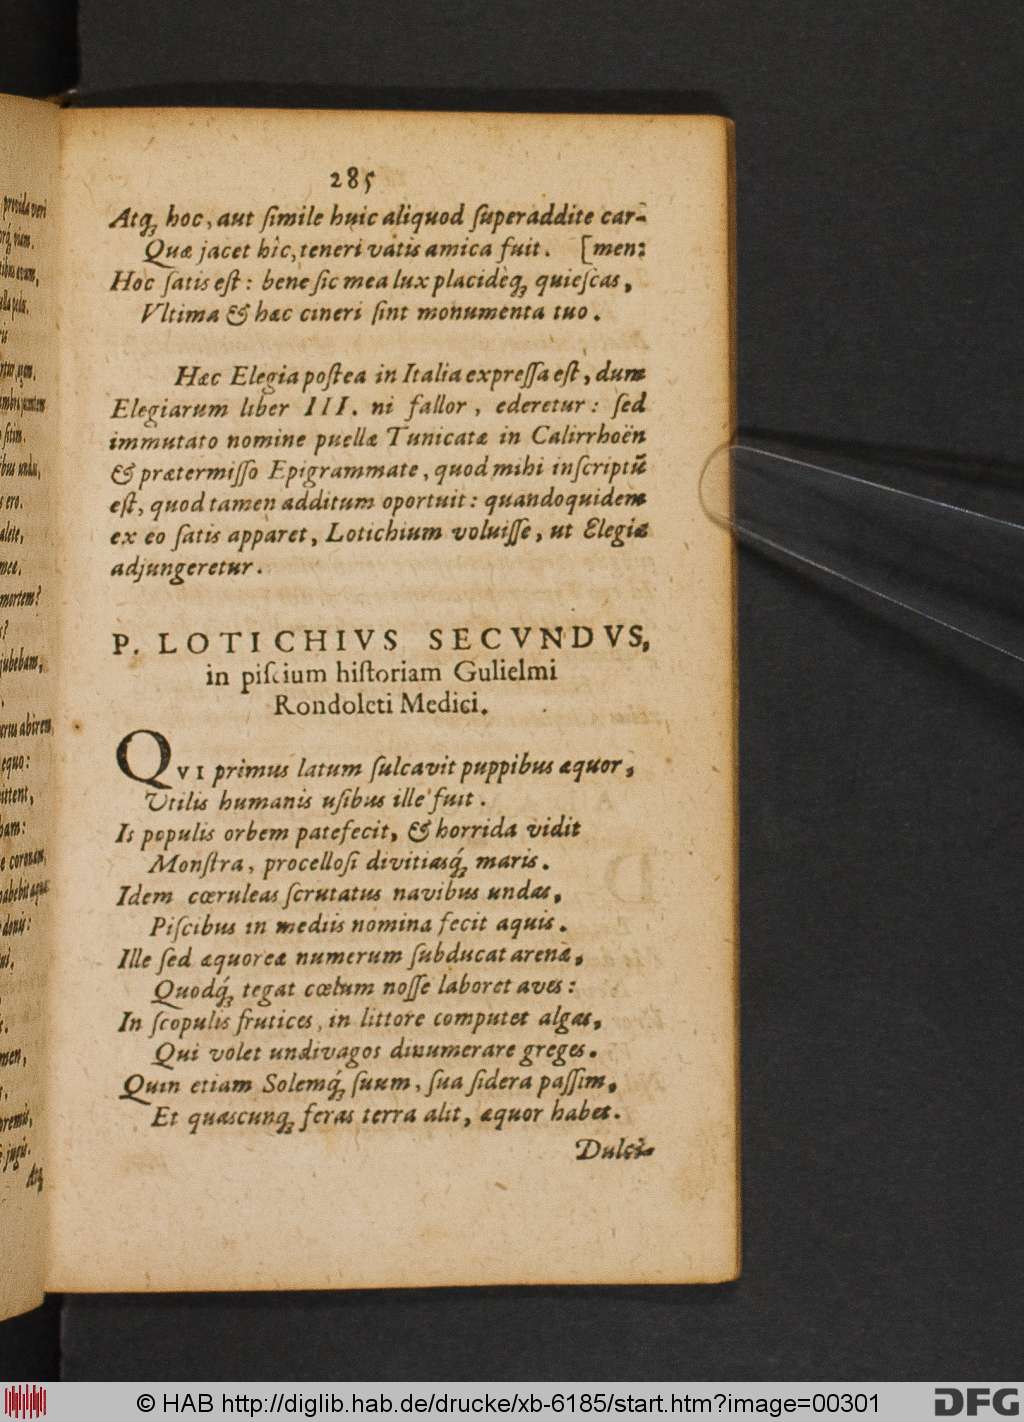 285
Atq; hoc, aut ſimile huic aliquod ſuperaddite car-
Quæ jacet hîc, teneri vatis amica fuit. [men:
Hoc ſatis eſt: bene ſic mea lux placidèq; quieſcas,
Vltima & hæc cineri ſint monumenta tuo.
Hæc Elegia poſtea in Italia expreſſa eſt, dum
Elegiarum liber III. ni fallor, ederetur: ſed
immutato nomine puellæ Tunicatæ in Calirrhoën
& prætermiſſo Epigrammate, quod mihi inſcriptũ
eſt, quod tamen additum oportuit: quandoquidem
ex eo ſatis apparet, Lotichium voluiſſe, ut Elegiæ
adjungeretur.
P. LOTICHIVS SECVNDVS,
in piſcium hiſtoriam Gulielmi
Rondoleti Medici.
QVI primus latum ſulcavit puppibus æquor,
Vtilis humanis uſibus ille fuit.
Is populis orbem patefecit, & horrida vidit
Monſtra, procelloſi divitiasq́; maris.
Idem cœruleas ſcrutatus navibus undas,
Piſcibus in mediis nomina fecit aquis.
Ille ſed æquoreæ numerum ſubducat arenæ,
Quodq́; tegat cœlum noſſe laboret aves:
In ſcopulis frutices, in littore computet algas,
Qui volet undivagos dinumerare greges.
Quin etiam Solemq́; ſuum, ſua ſidera paſſim,
Et quascunq; feras terra alit, æquor habet.
Dulci-
provida veri
viam.
mortem?
jubebam,
abirem
equo:
coronam,
habebit aquæ
Atq;
© HAB http://diglib.hab.de/drucke/xb-6185/start.htm?image=00301
DFG